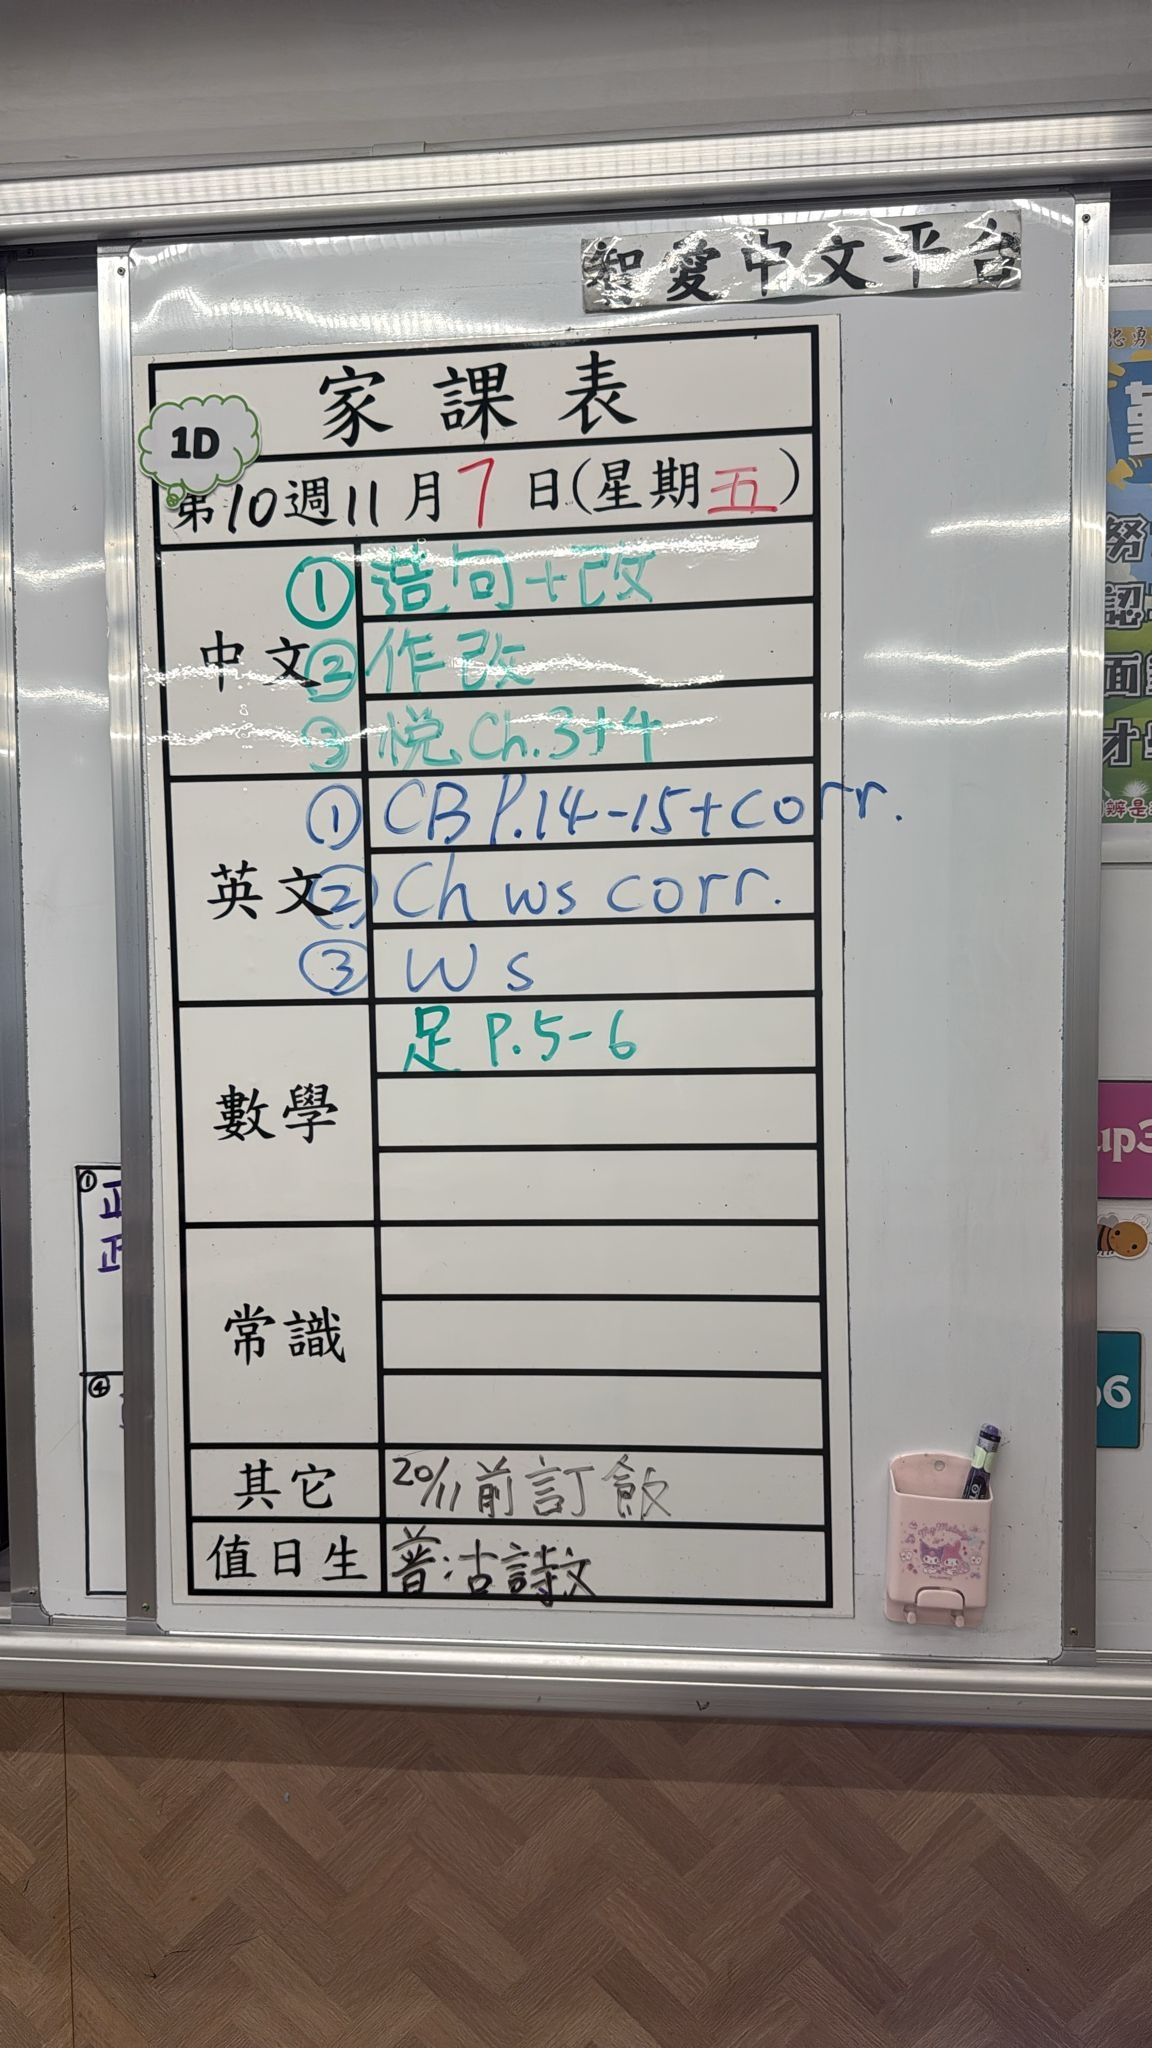 智愛中文平台
家課表
1D
第10週11月7日(星期五)
中文
① 造句+改
② 作改
③ 悅 Ch.3+4
英文
① CB P.14-15+corr.
② Ch ws corr.
③ Ws
數學
足 P.5-6
常識
其它
20/11前訂飯
值日生
普:古詩文
忠勇
努
認
面
才
辨是
up3
p6
①
正
正
④